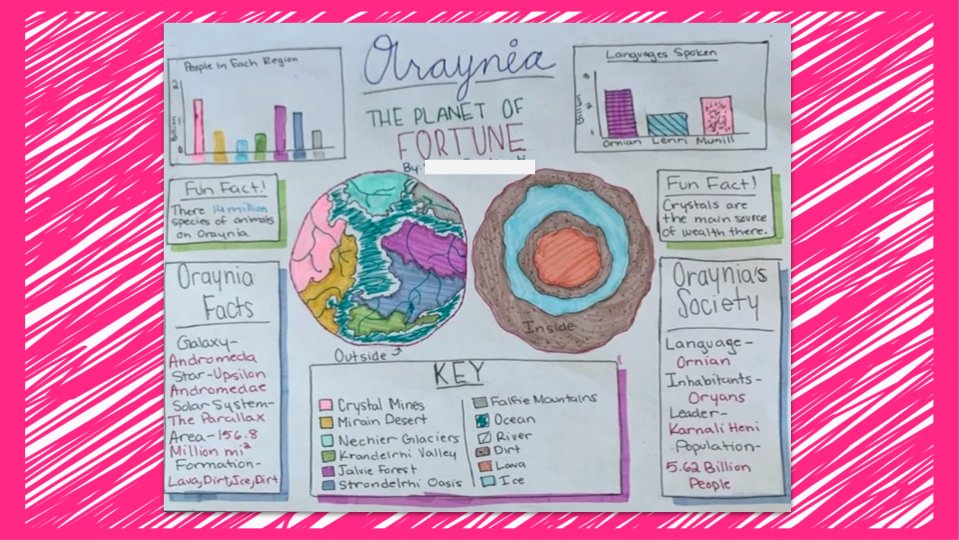 Oraynia
THE PLANET OF
FORTUNE
By:
People In Each Region
2
0
Billion
Languages Spoken
Billion
Ornian Lenri Munill
Fun Fact!
There 14 million
species of animals
on Oraynia.
Fun Fact!
Crystals are
the main source
of wealth there.
Oraynia
Facts
Galaxy-
Andromeda
Star-Upsilon
Andromedae
Solar System-
The Parallax
Area-156.8
Million mi²
Formation-
Lava,Dirt,Ice,Dirt
Outside
Inside
KEY
Crystal Mines
Mirain Desert
Nechier Glaciers
Krandelrhi Valley
Jalvie Forest
Strondelrhi Oasis
Falfie Mountains
Ocean
River
Dirt
Lava
Ice
Oraynia's
Society
Language-
Ornian
Inhabitants-
Oryans
Leader-
Karnali Heni
Population-
5.62 Billion
People